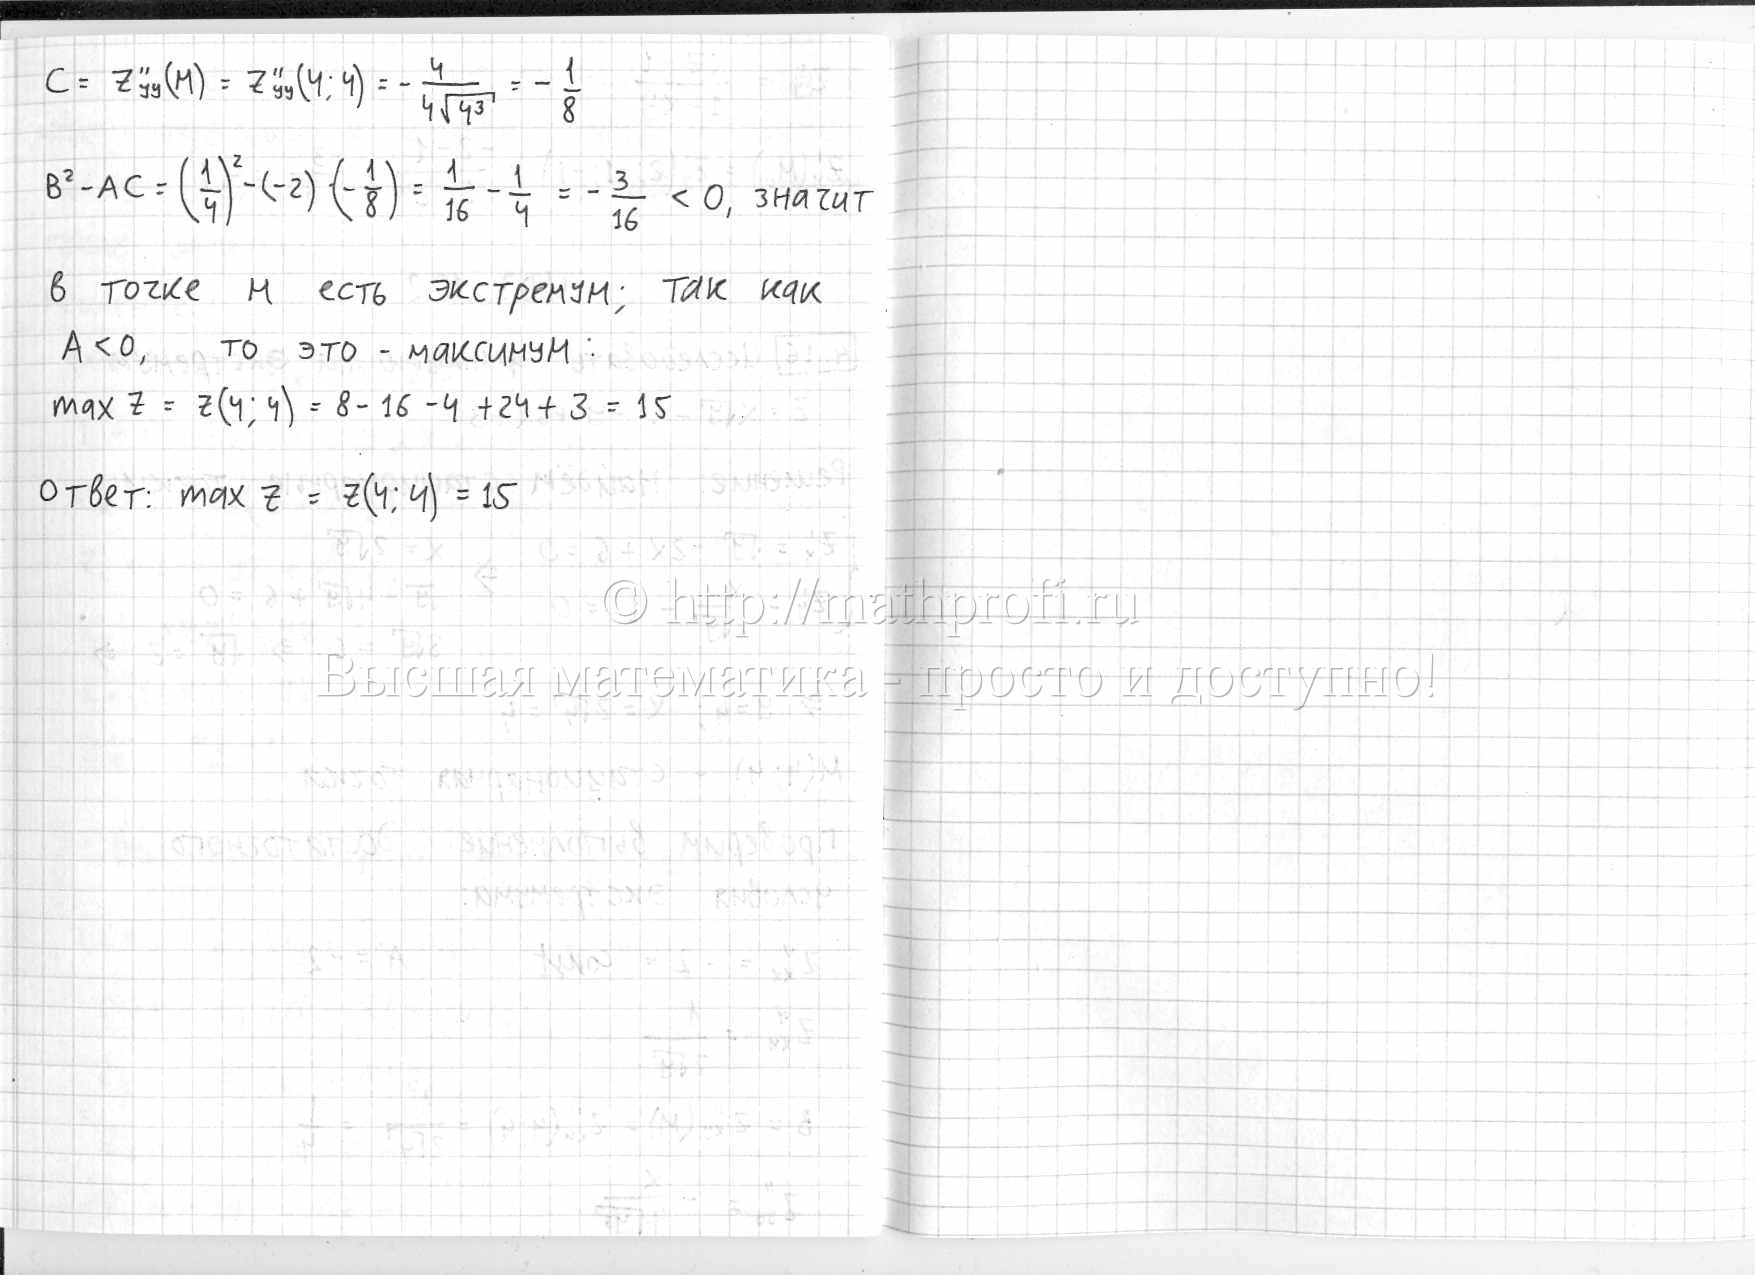 C = z''yy(M) = z''yy(4; 4) = - 4/(4√4³) = - 1/8
B² - AC = (1/4)² - (-2) · (-1/8) = 1/16 - 1/4 = - 3/16 < 0, значит
в точке M есть экстремум; так как
A < 0, то это - максимум:
max z = z(4; 4) = 8 - 16 - 4 + 24 + 3 = 15
Ответ: max z = z(4; 4) = 15
© http://mathprofi.ru
Высшая математика - просто и доступно!